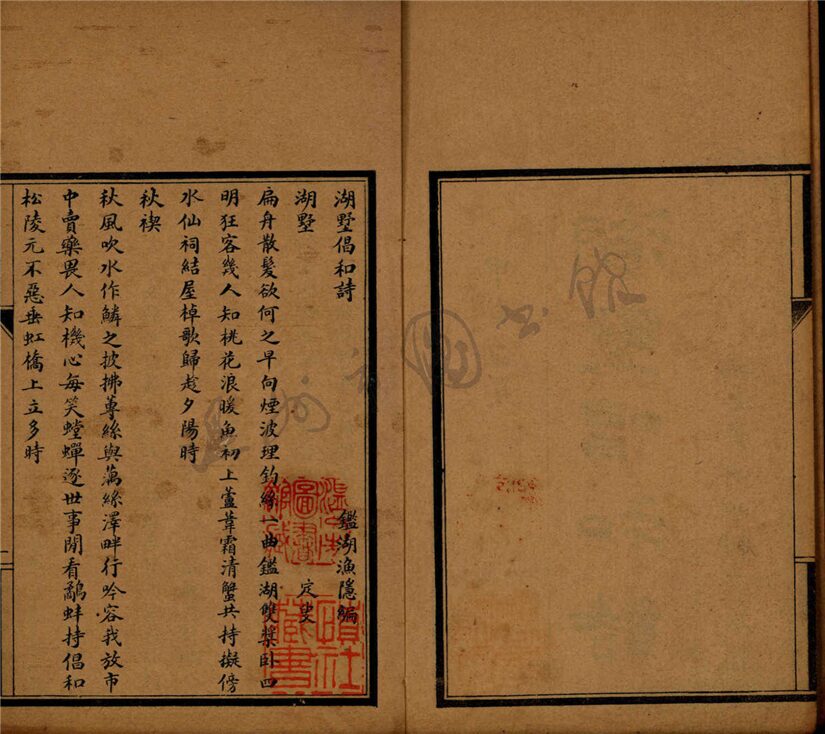 湖墅倡和詩
鑑湖漁隱編
湖墅
定叟
扁舟散髮欲何之早向煙波理釣絲一曲鑑湖雙槳臥四
明狂客幾人知桃花浪暖魚初上蘆葦霜清蟹共持擬傍
水仙祠結屋棹歌歸趁夕陽時
秋禊
秋風吹水作鱗之披拂蓴絲與藕絲澤畔行吟容我放市
中賣藥畏人知機心每笑螳蟬逐世事閒看鷸蚌持倡和
松陵元不惡垂虹橋上立多時